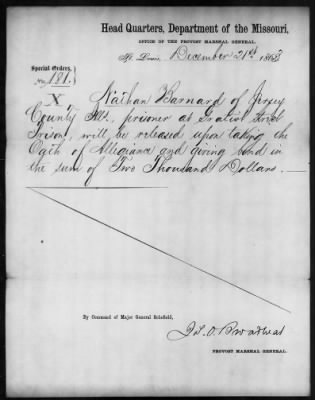 Head Quarters, Department of the Missouri,
OFFICE OF THE PROVOST MARSHAL GENERAL.
St. Louis, December 21st 1863
Special Orders,
No. 181.
X. Nathan Barnard of Jersey
County Ills., prisoner at Gratiot Street
Prison, will be released upon taking the
Oath of Allegiance and giving bond in
the sum of Two Thousand Dollars.
By Command of Major General Schofield,
PROVOST MARSHAL GENERAL.